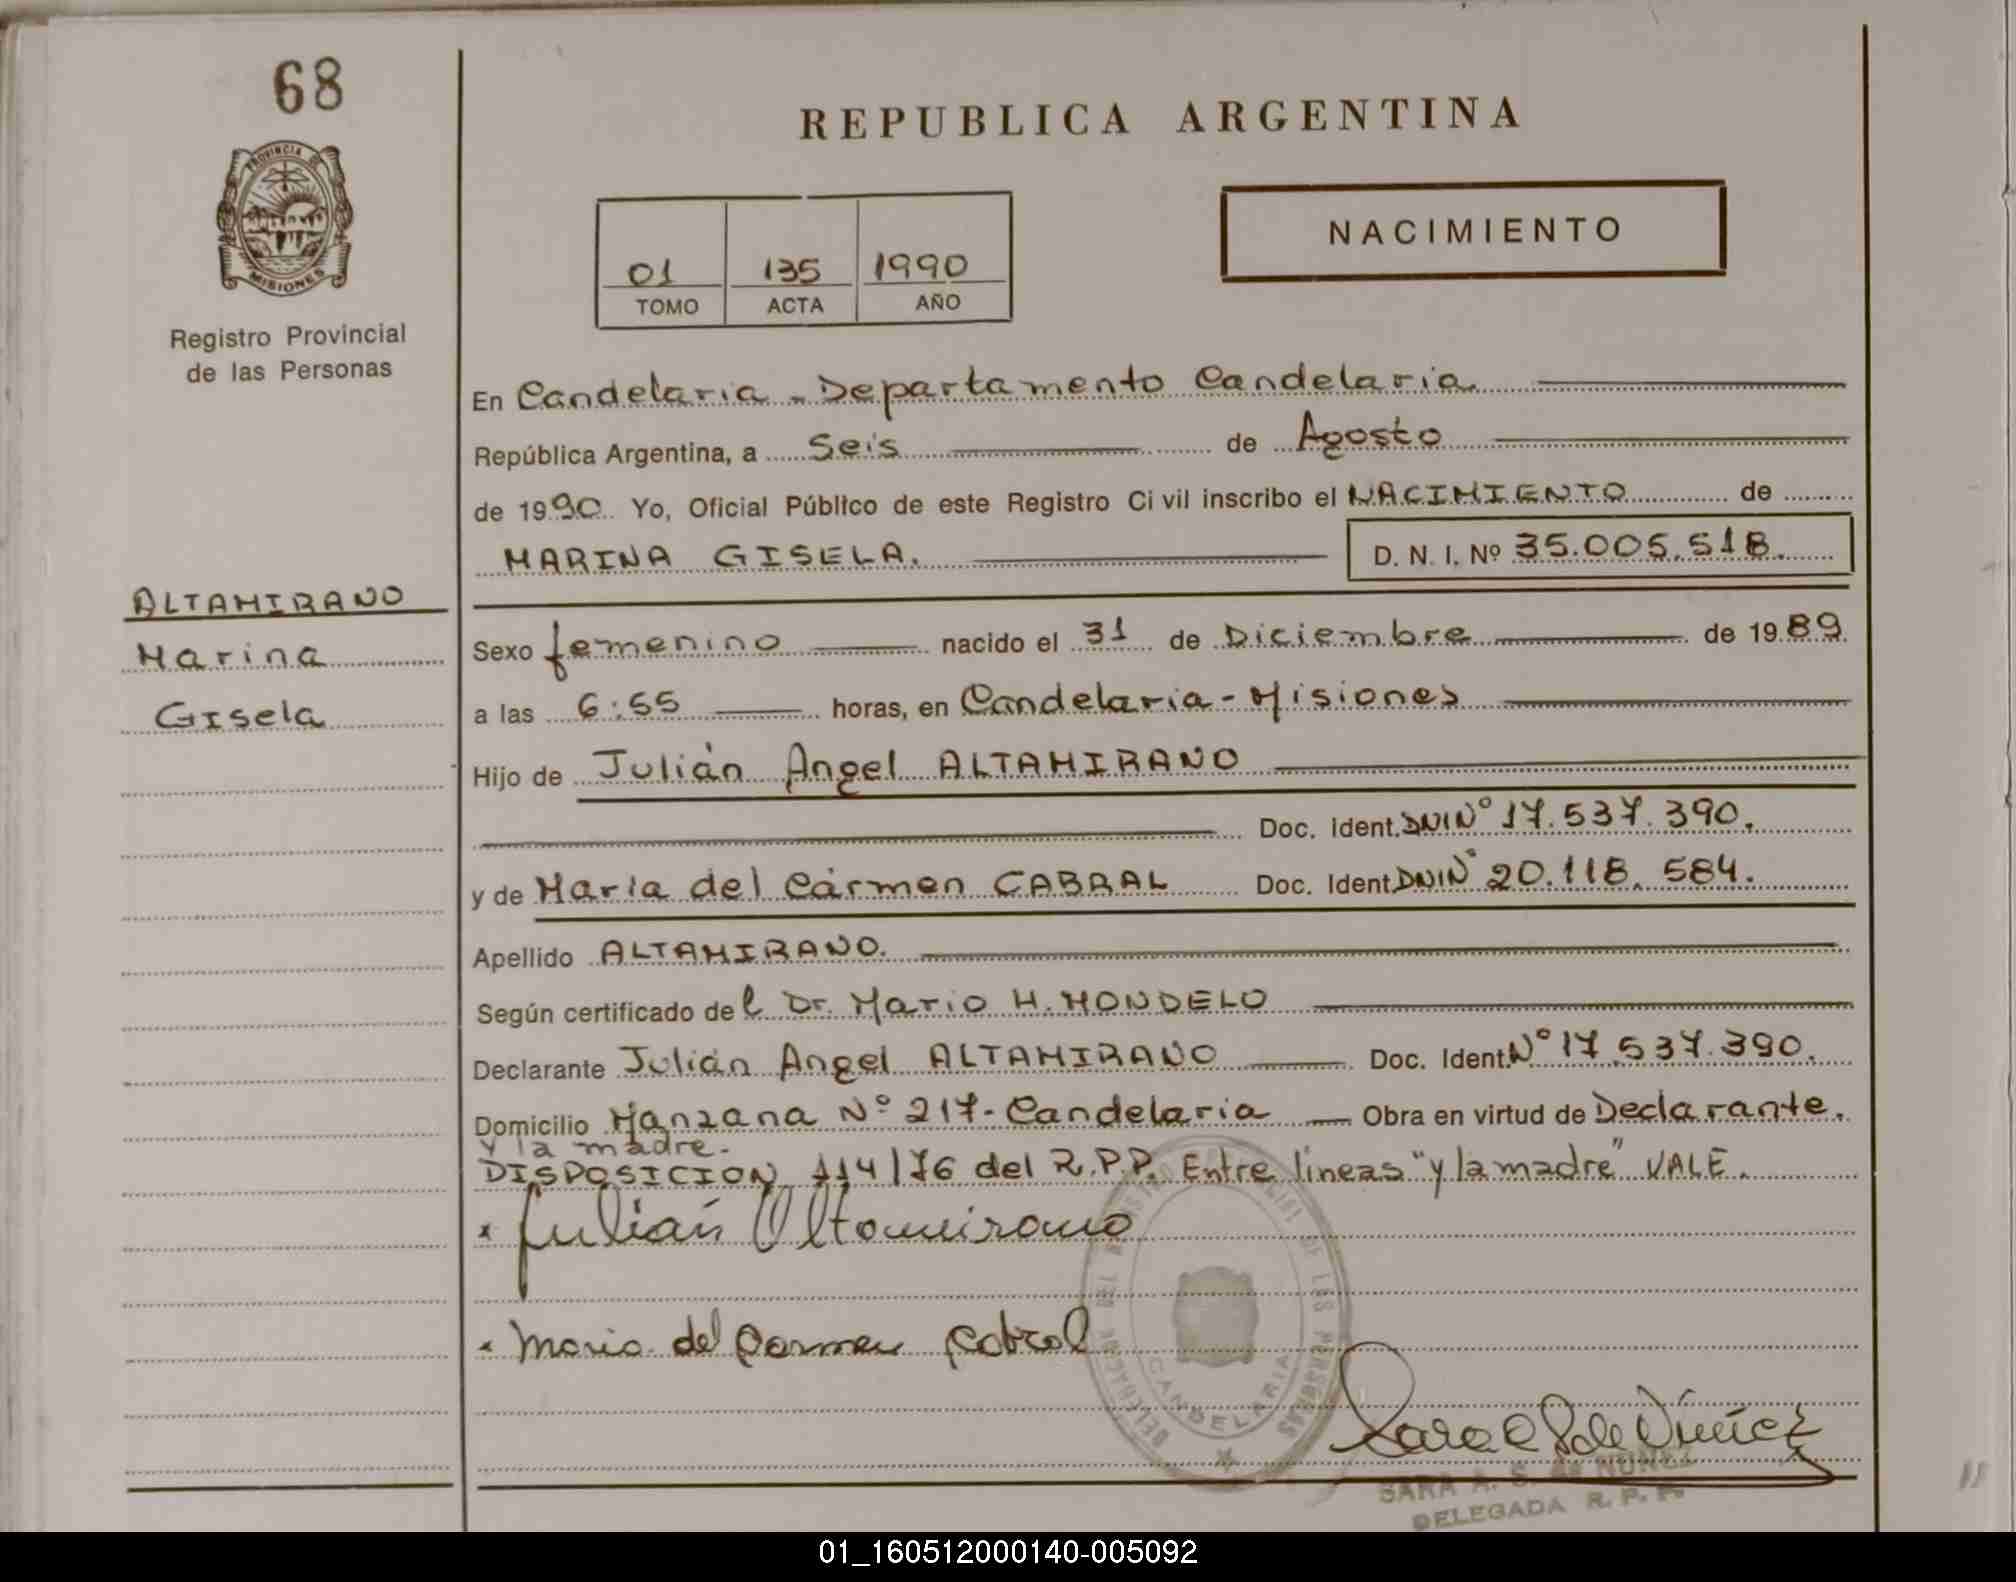 68
REPUBLICA ARGENTINA
PROVINCIA DE
MISIONES
Registro Provincial
de las Personas
NACIMIENTO
01 135 1990
TOMO ACTA AÑO
En Candelaria - Departamento Candelaria.
República Argentina, a Seis de Agosto
de 1990. Yo, Oficial Público de este Registro Civil inscribo el NACIMIENTO de
MARINA GISELA. D. N. I. Nº 35.005.518.
ALTAMIRANO
Marina
Gisela
Sexo femenino nacido el 31 de Diciembre de 1989.
a las 6:55 horas, en Candelaria - Misiones
Hijo de Julián Angel ALTAMIRANO
Doc. Ident. DNI Nº 17.537.390.
y de María del Cármen CABRAL Doc. Ident. DNI Nº 20.118.584.
Apellido ALTAMIRANO.
Según certificado del Dr. Mario H. MONDELO
Declarante Julián Angel ALTAMIRANO Doc. Ident. Nº 17.537.390.
Domicilio Manzana Nº 217 - Candelaria Obra en virtud de Declarante.
y la madre.-
DISPOSICION 114/76 del R.P.P. Entre lineas "y la madre" VALE.
x Julián Altamirano
x Maria del Carmen Cabral
DELEGACION DEL REGISTRO PROVINCIAL DE LAS PERSONAS
CANDELARIA
Sara A S de Núñez
SARA A. S. de NUÑEZ
DELEGADA R. P. P.
01_160512000140-005092